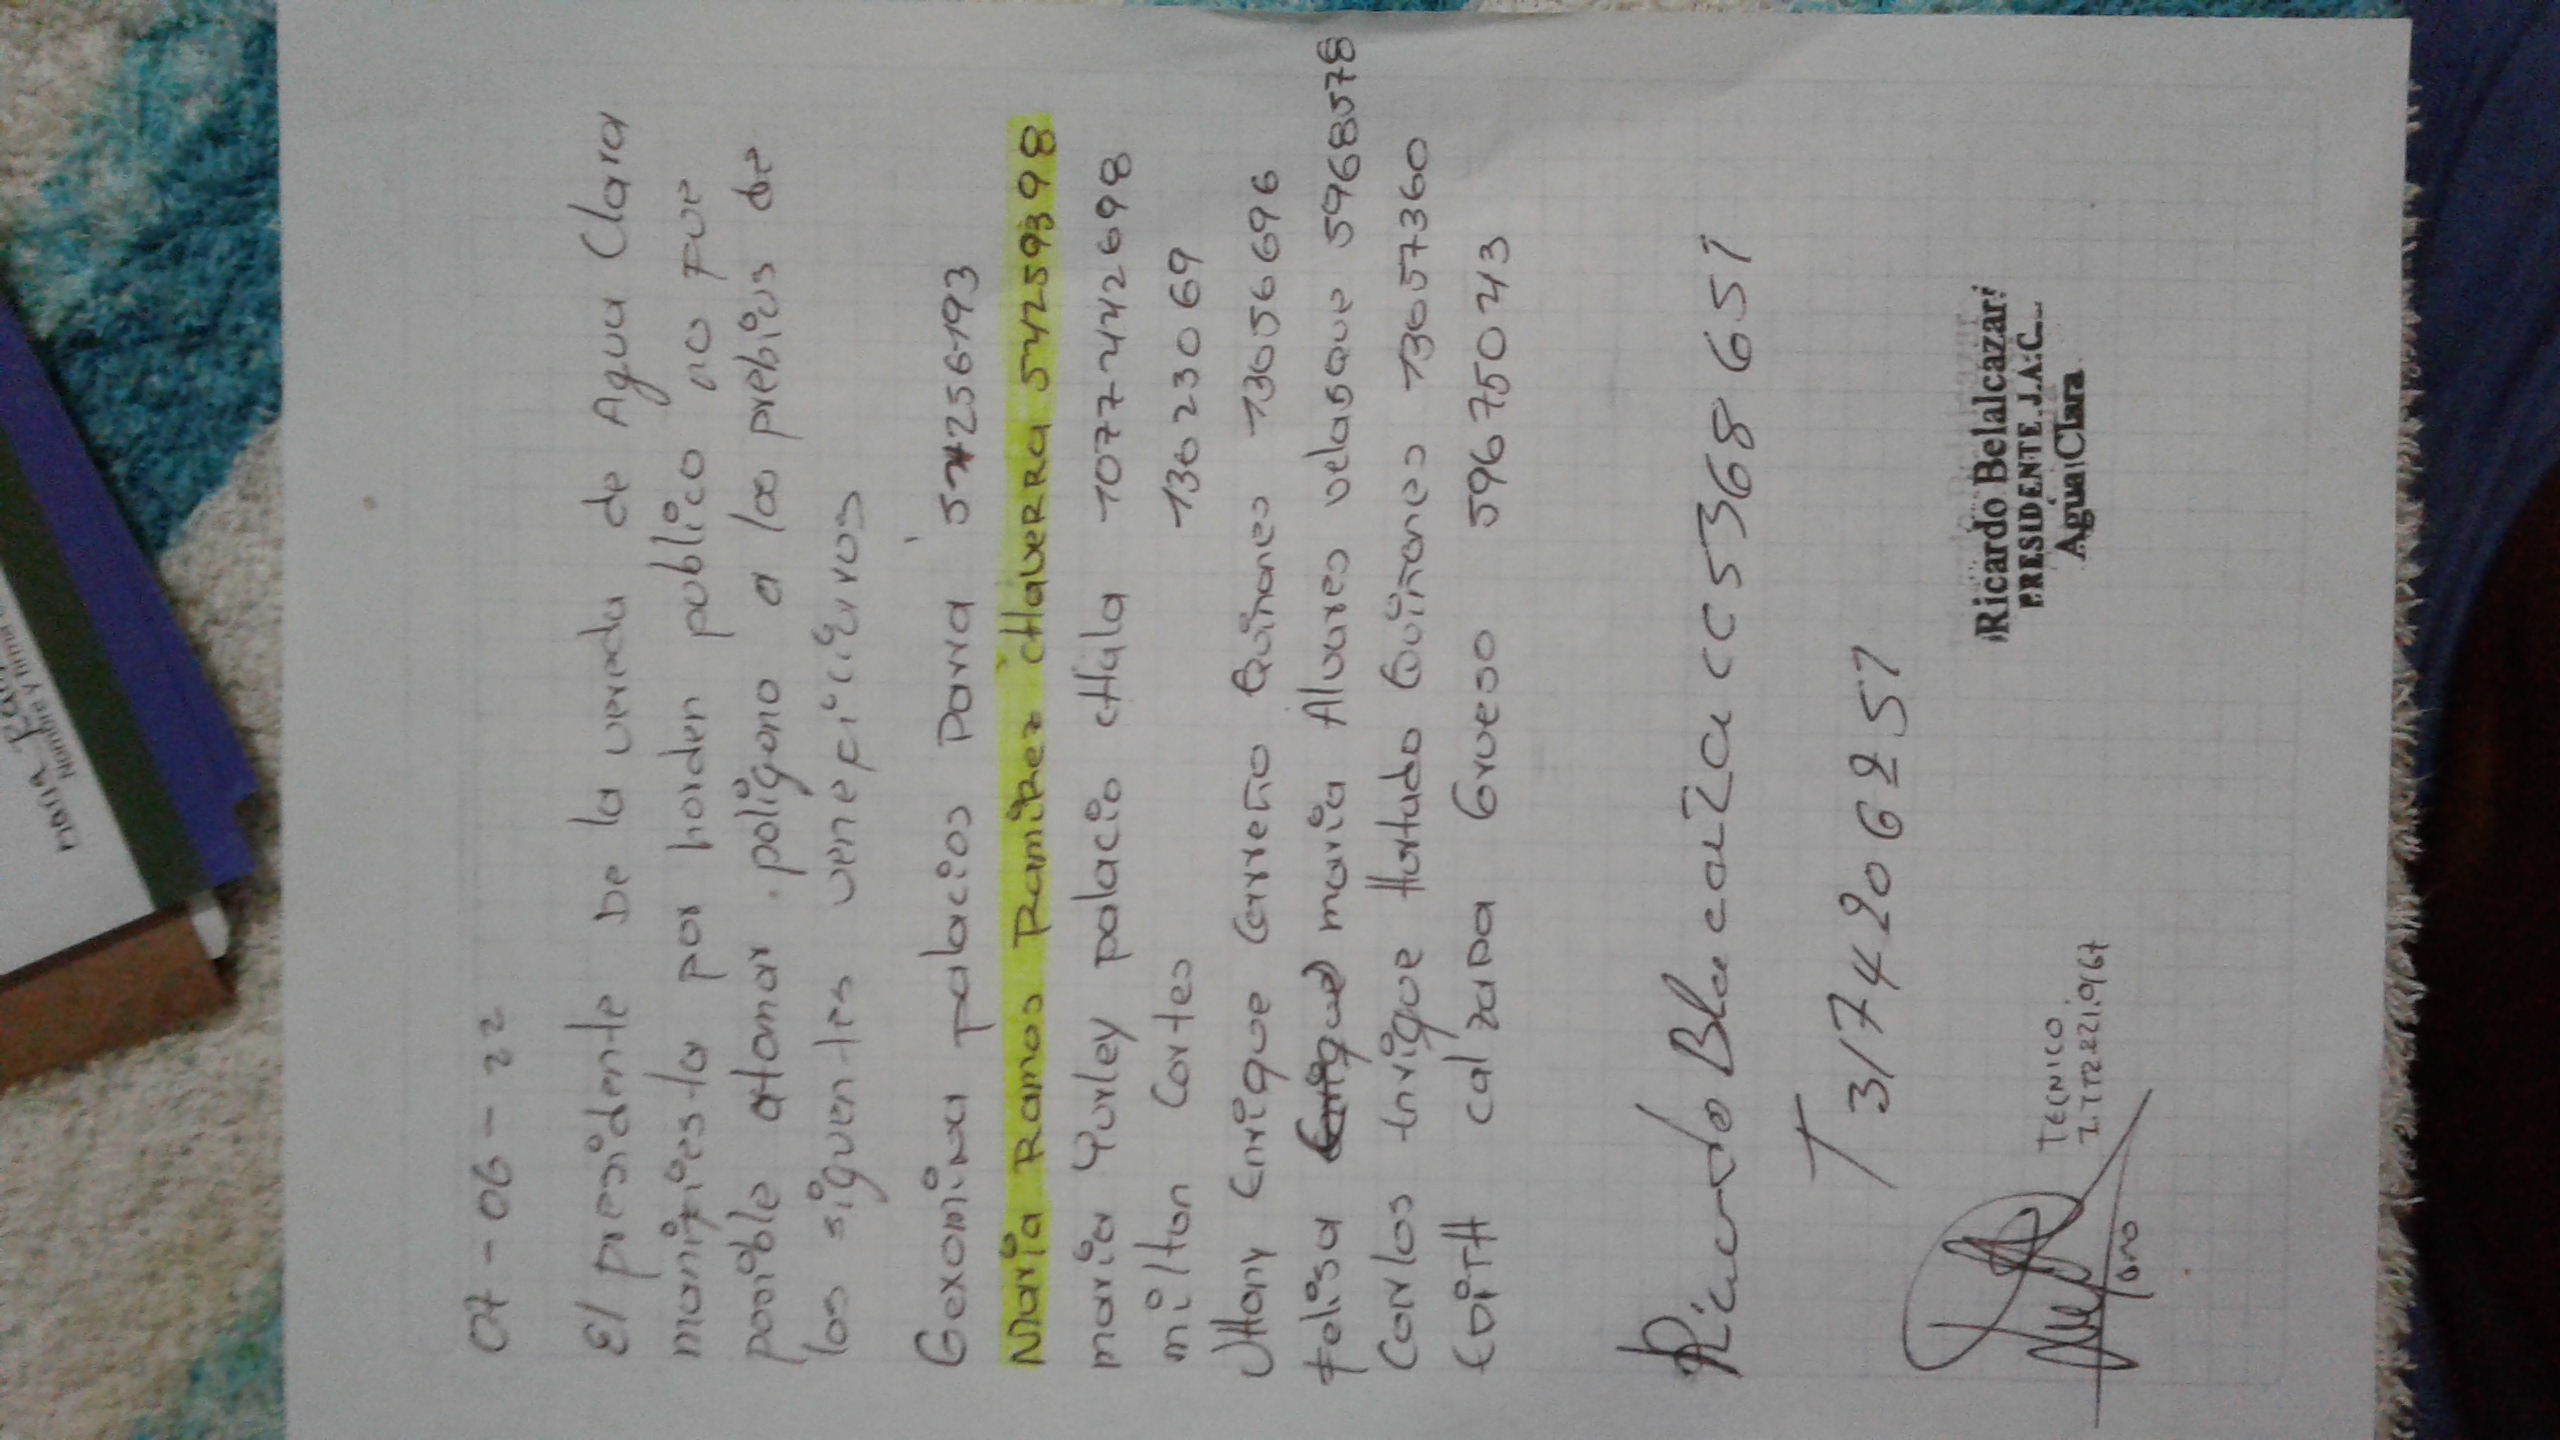 07-06-22
El presidente De la vereda de Agua Clara
manifiesta por horden publico no fue
posible atomar poligono a los prebios de
los siguentes veneficiarios
Gexomina palacios Parra
Maria Ramos Ramirez cHaverra 54259398
maria Yurley palacio cHala 1077442698
milton Cortes 13623069
JHony Enrique Carreño Quiñones 13056696
felisa maria Alvares velasque 5968578
Carlos Enrique Hurtado Quiñones 13057360
EDiTH calzapa Grueso 59675043
Ricardo cc 5368651
T 3174206257
TECNICO
Ricardo Belalcazar
PRESIDENTE J.A.C.
Agua Clara
MARIA
Nombre y firma